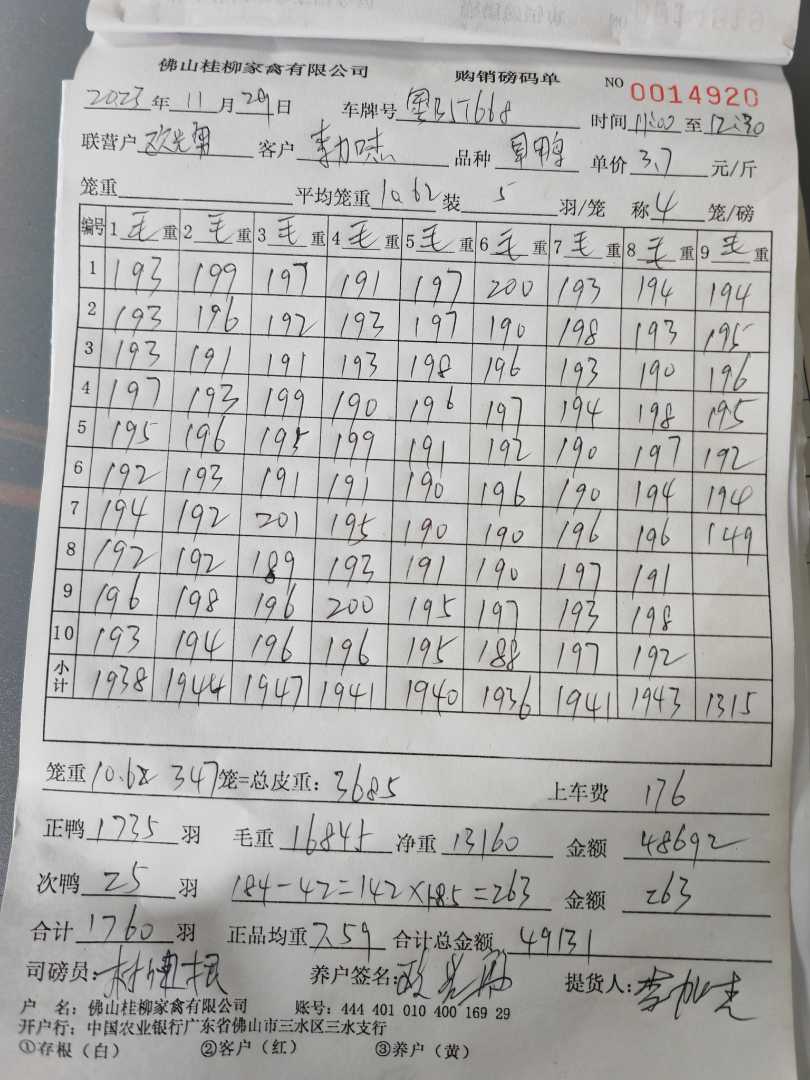 佛山桂柳家禽有限公司 购销磅码单 NO 0014920
2023年11月29日 车牌号 时间11:00至12:30
联营户 客户 品种 单价3.7元/斤
笼重 平均笼重10.62装5羽/笼 称4笼/磅
编号 1毛重 2毛重 3毛重 4毛重 5毛重 6毛重 7毛重 8毛重 9毛重
1 193 199 197 191 197 200 193 194 194
2 193 196 192 193 197 190 198 193 195
3 193 191 191 193 198 196 193 190 196
4 197 193 199 190 196 197 194 198 195
5 195 196 195 199 191 192 190 197 192
6 192 193 191 191 190 196 190 194 194
7 194 192 201 195 190 190 196 196 149
8 192 192 189 193 191 190 197 191
9 196 198 196 200 195 197 193 198
10 193 194 196 196 195 188 197 192
小计 1938 1944 1947 1941 1940 1936 1941 1943 1315
笼重10.62 347笼=总皮重:3685 上车费 176
正鸭1735羽 毛重16845 净重13160 金额48692
次鸭25羽 184-42=142×1.85=263 金额263
合计1760羽 正品均重7.59 合计总金额49131
司磅员: 养户签名: 提货人:
户 名:佛山桂柳家禽有限公司 账号:444 401 010 400 169 29
开户行:中国农业银行广东省佛山市三水区三水支行
①存根(白) ②客户(红) ③养户(黄)